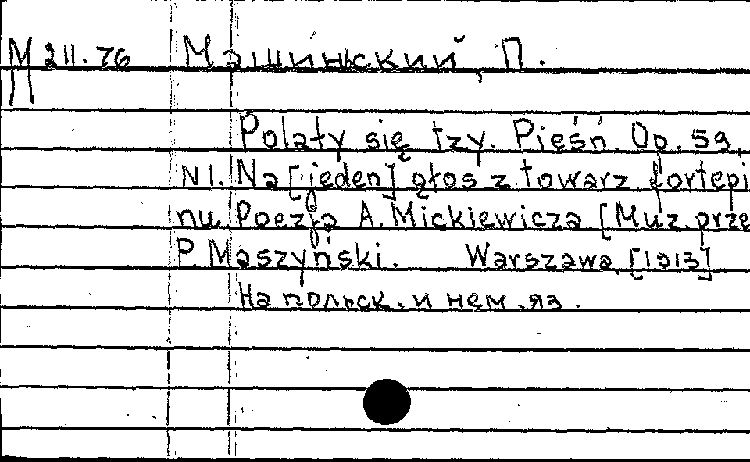 М 211.76 Машинский, П.
Polały się łzy. Pieśń. Op. 59,
N1. Na [jeden] głos z towarz fortepi
nu. Poezja A. Mickiewicza [Muz. prze
P. Maszyński. Warszawa, [1913]
На польск. и нем. яз.